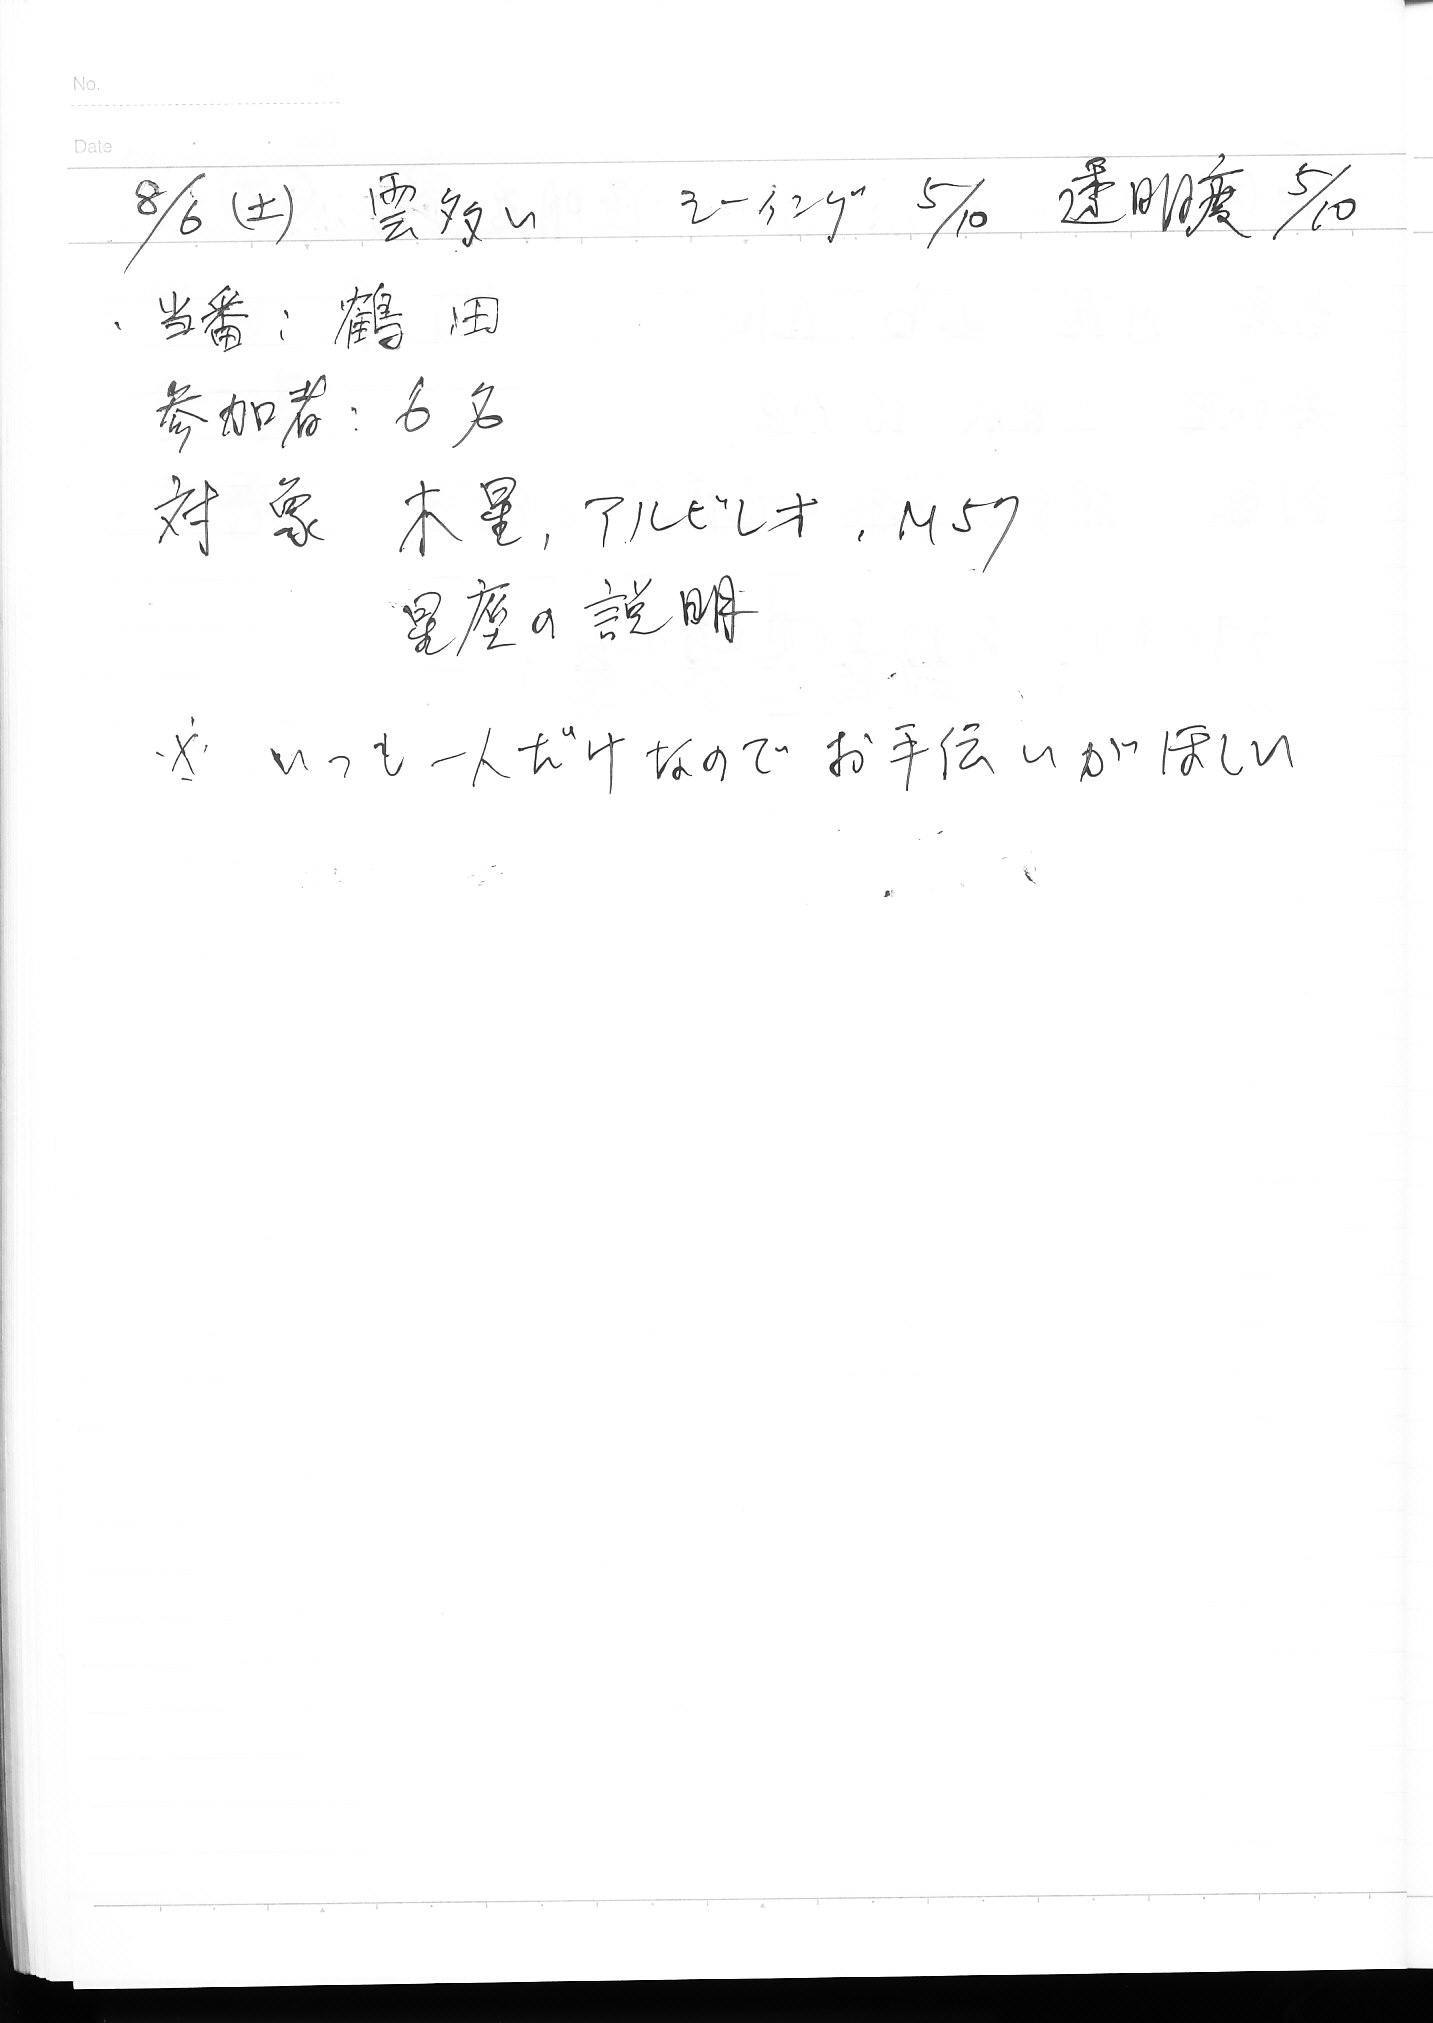 No.
Date
8/6(土) 雲多い シーイング 5/10 透明度 5/10
当番: 鶴田
参加者: 6名
対象 木星, アルビレオ, M57
星座の説明
※ いつも一人だけなのでお手伝いがほしい